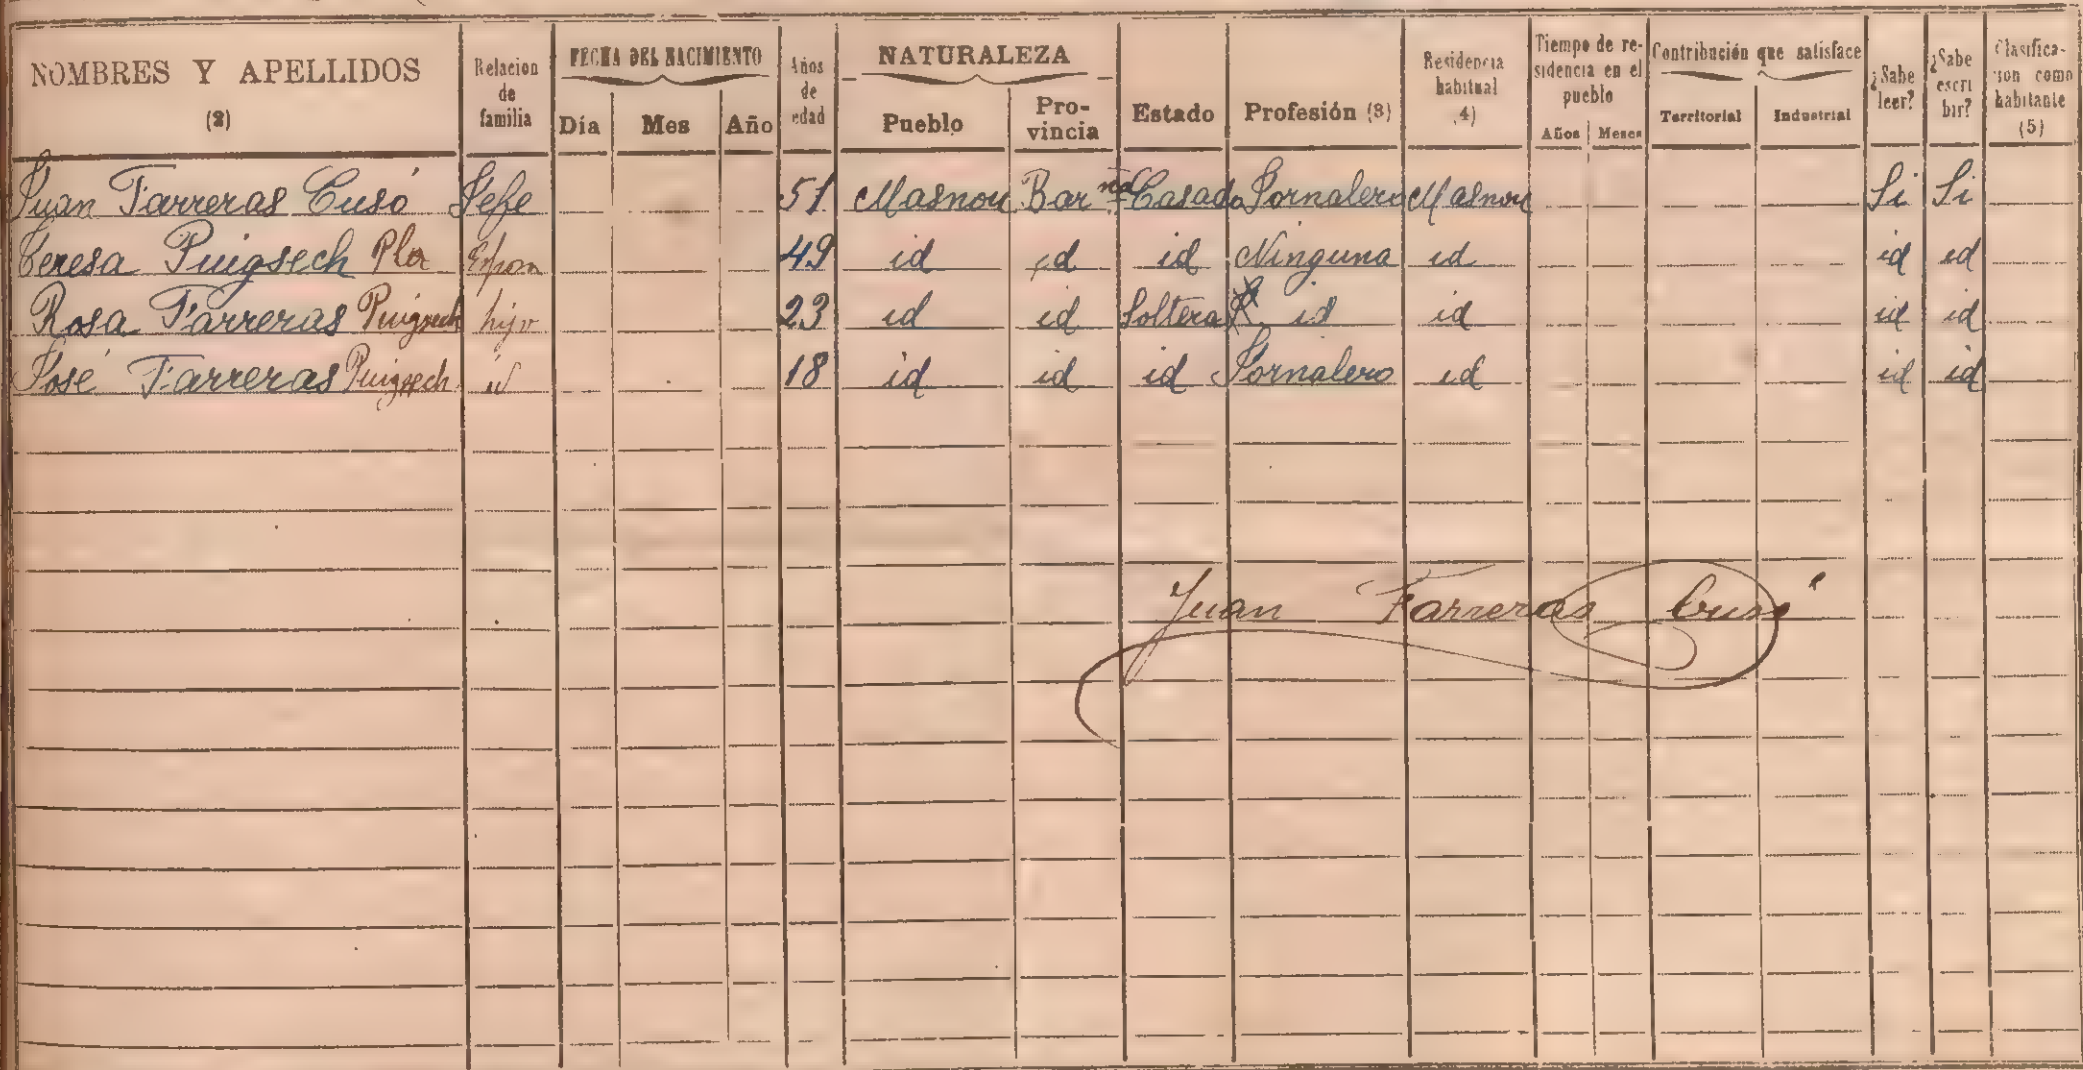 NOMBRES Y APELLIDOS (2) Relacion de familia FECHA DEL NACIMIENTO Día Mes Año Años de edad NATURALEZA Pueblo Provincia Estado Profesión (3) Residencia habitual (4) Tiempo de residencia en el pueblo Años Meses Contribución que satisface Territorial Industrial ¿Sabe leer? ¿Sabe escribir? Clasificacion como habitante (5)
Juan Farreras Cusó Jefe 51 Masnou Bar.na Casado Jornalero Masnou Si Si
Teresa Puigsech Pla Espon 49 id id id Ninguna id id id
Rosa Farreras Puigsech hija 23 id id Soltera id id id id
José Farreras Puigsech id 18 id id id Jornalero id id id
Juan Farreras Cusó